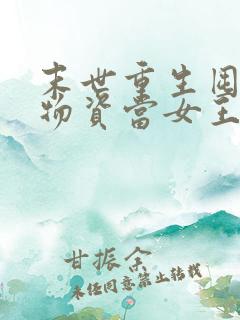 末世重生囤
物资當女王
甘振余
未经同意禁止转载